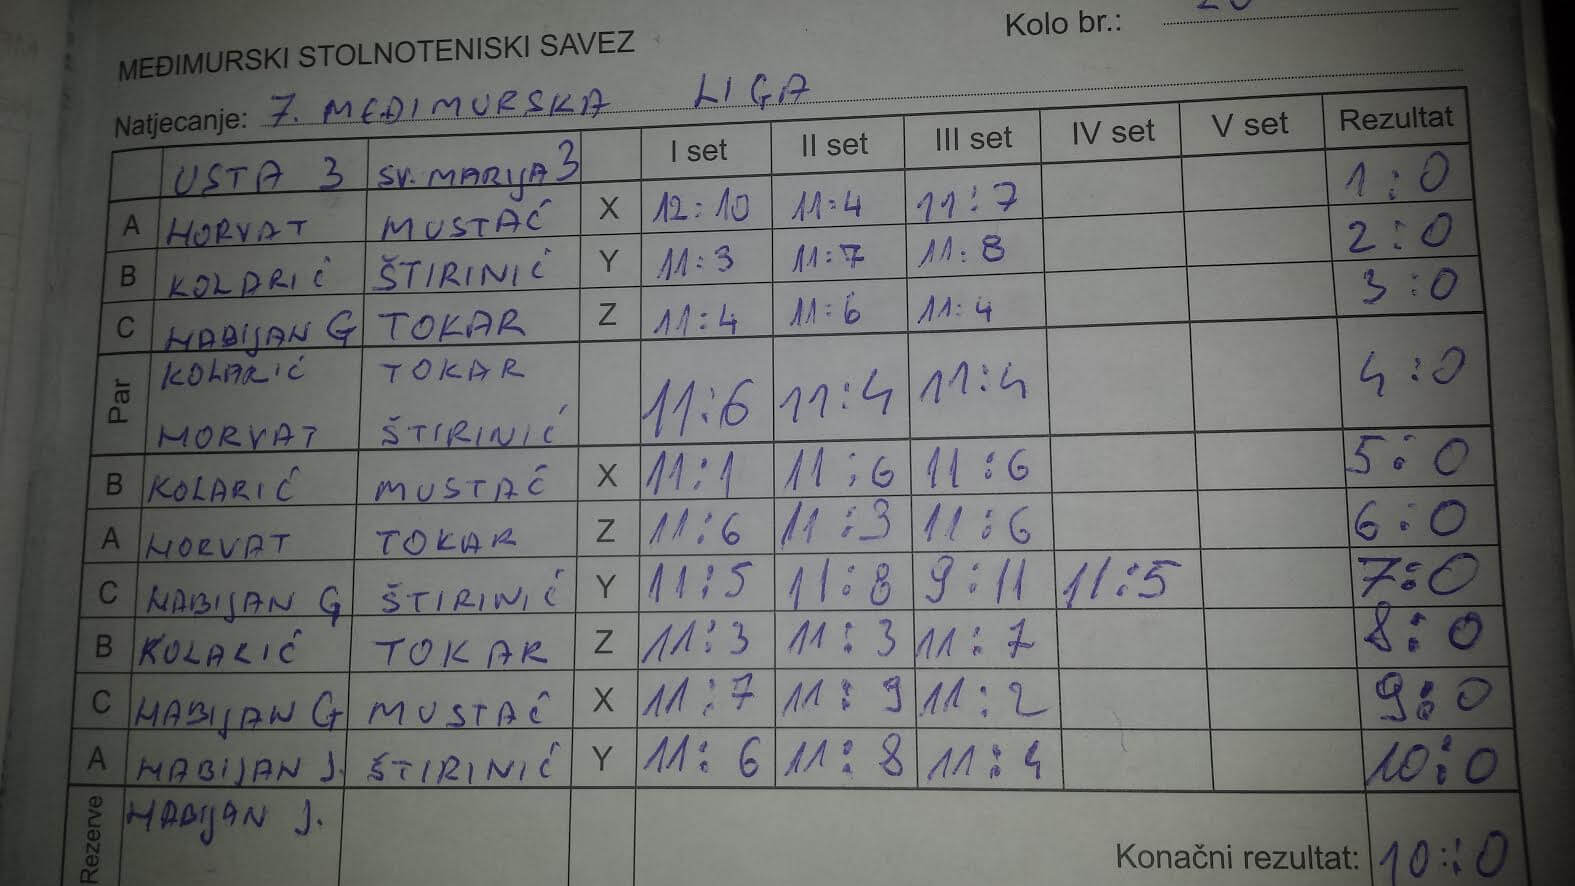 MEĐIMURSKI STOLNOTENISKI SAVEZ
Kolo br.:
Natjecanje: 7. MEĐIMURSKA LIGA
USTA 3 SV. MARIJA 3 I set II set III set IV set V set Rezultat
A HORVAT MUSTAĆ X 12:10 11:4 11:7 1:0
B KOLARIĆ ŠTIRINIĆ Y 11:3 11:7 11:8 2:0
C HABIJAN G TOKAR Z 11:4 11:6 11:4 3:0
Par KOLARIĆ TOKAR 11:6 11:4 11:4 4:0
HORVAT ŠTIRINIĆ
B KOLARIĆ MUSTAĆ X 11:1 11:6 11:6 5:0
A HORVAT TOKAR Z 11:6 11:3 11:6 6:0
C HABIJAN G ŠTIRINIĆ Y 11:5 11:8 9:11 11:5 7:0
B KOLARIĆ TOKAR Z 11:3 11:3 11:7 8:0
C HABIJAN G MUSTAĆ X 11:7 11:9 11:2 9:0
A HABIJAN J. ŠTIRINIĆ Y 11:6 11:8 11:4 10:0
Rezerve HABIJAN J.
Konačni rezultat: 10:0